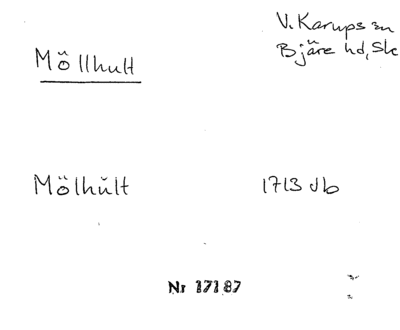 Möllhult
V. Karups sn
Bjäre hd, Sk
Mölhŭlt
1713 Jb
Nr 17187